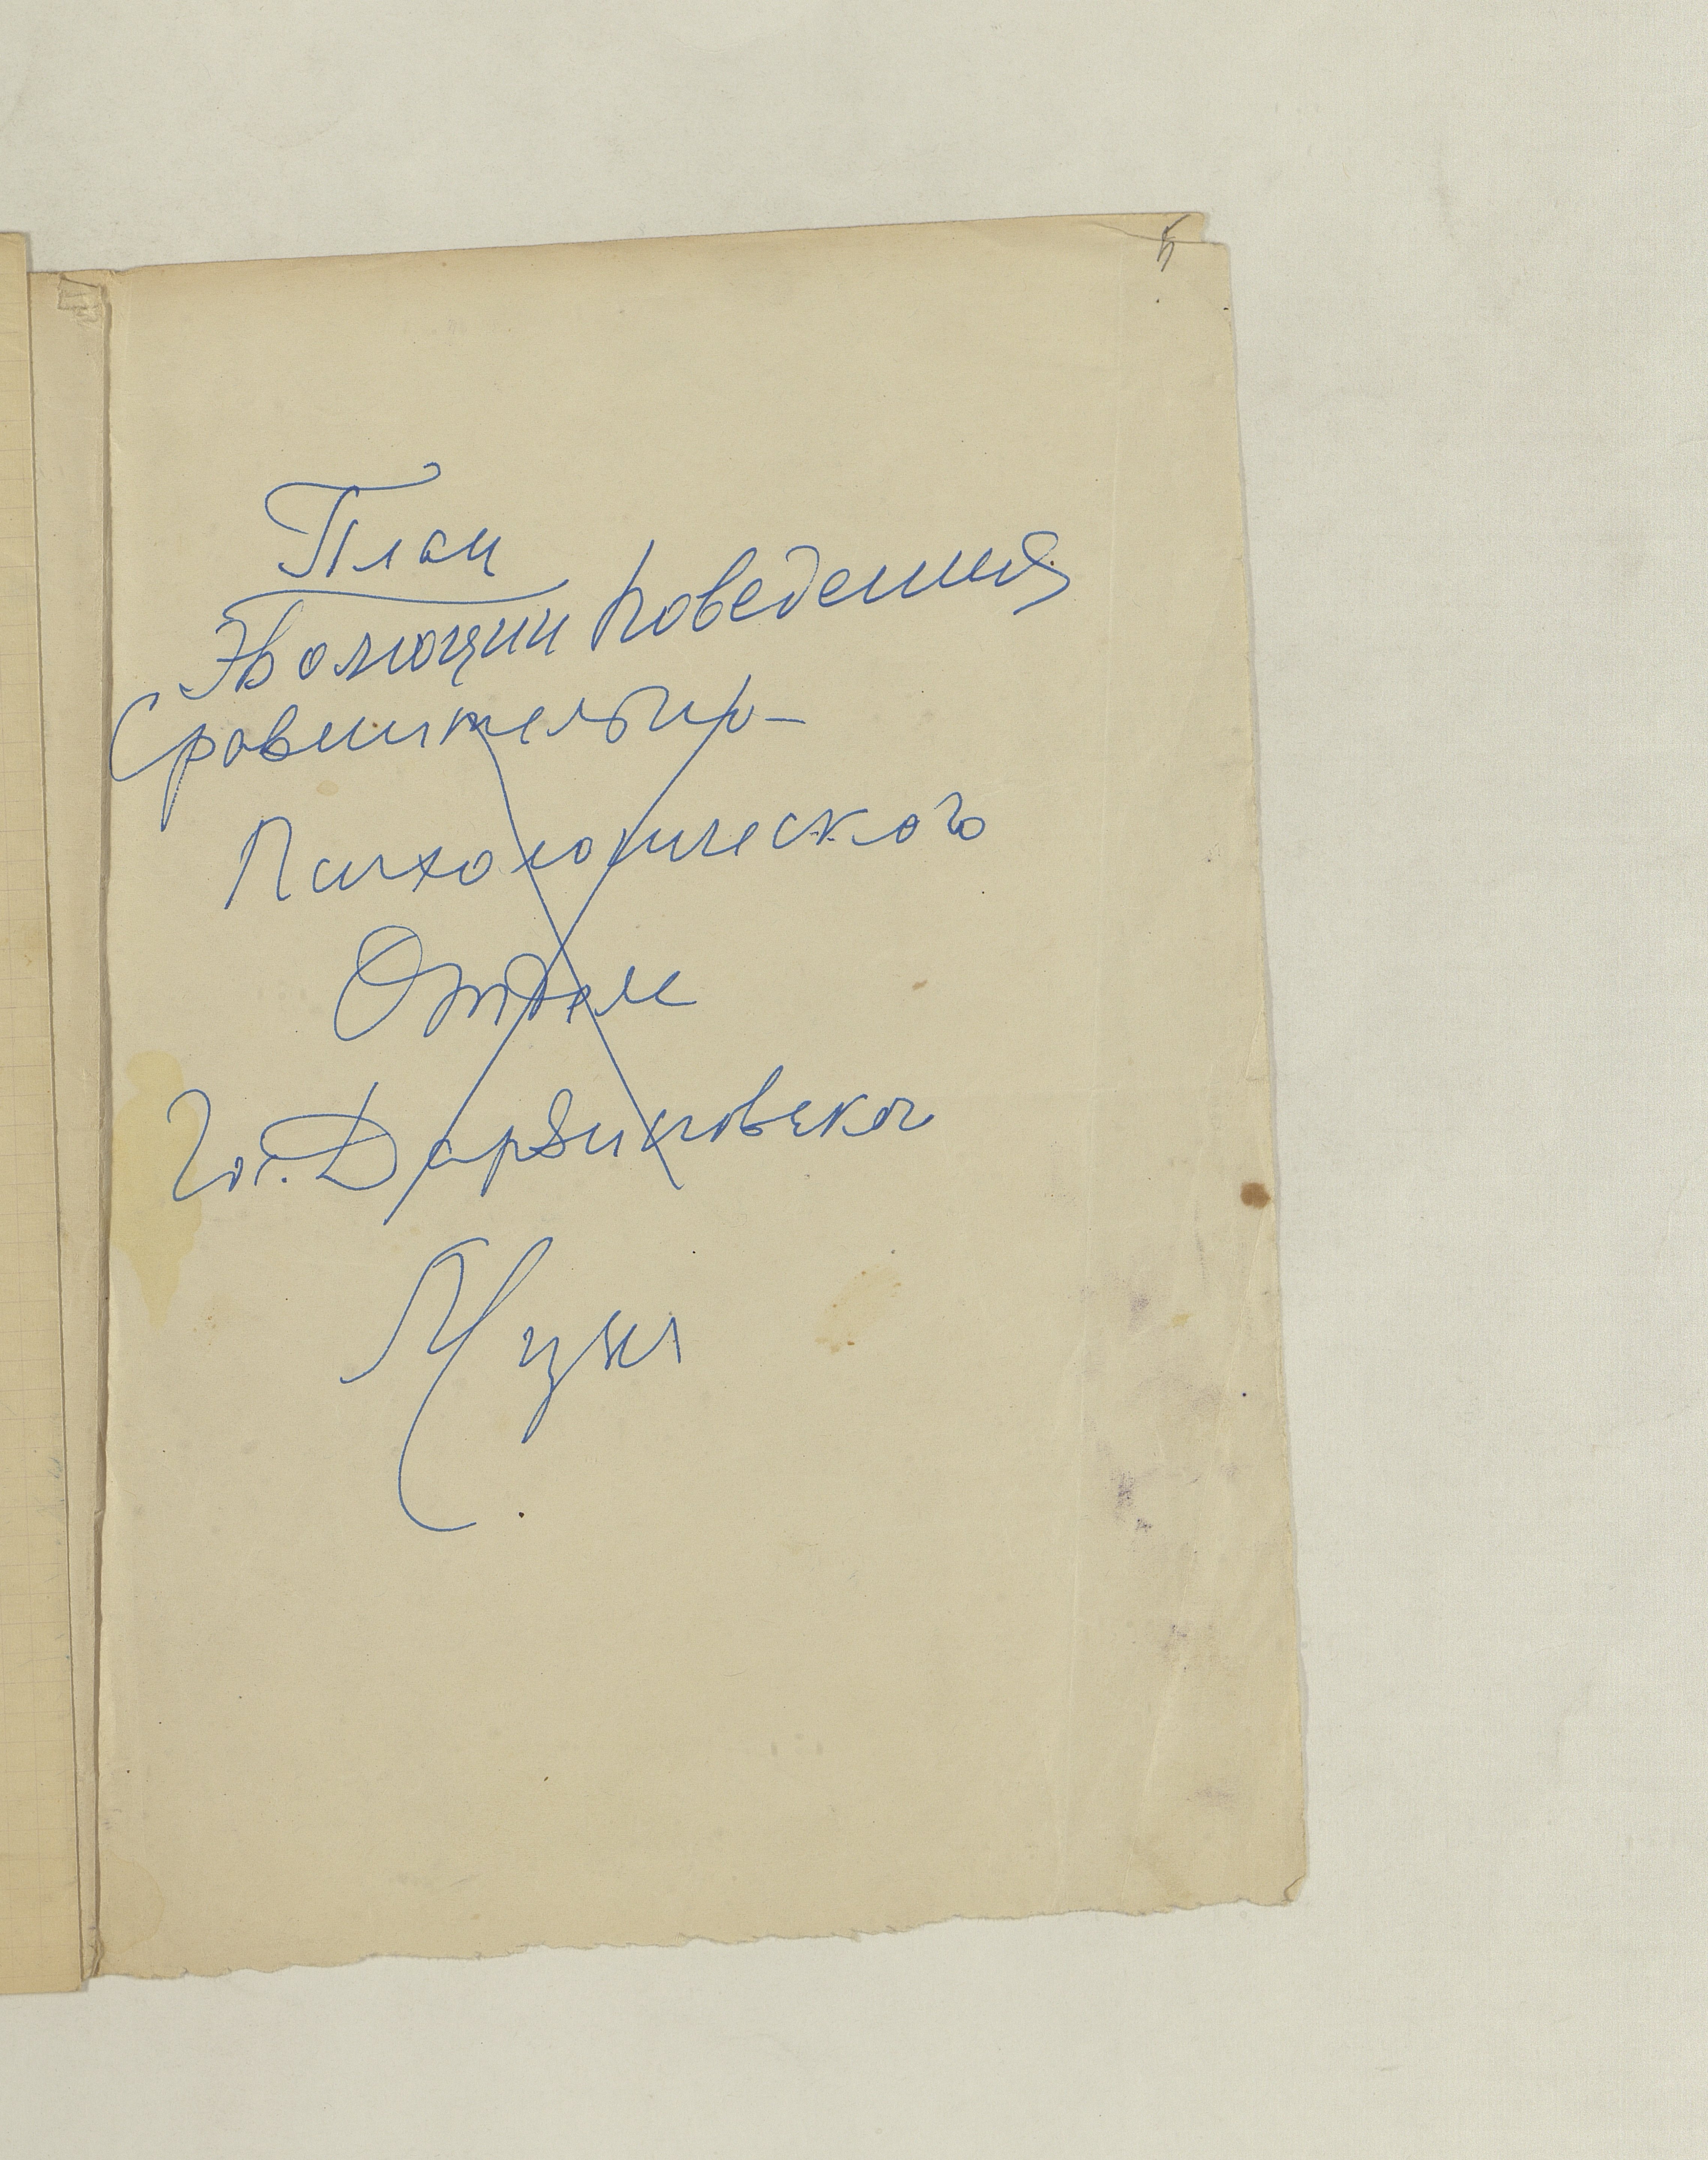 План
Эволюции поведения
Сравнительно-
Психологического
Отдела
Гос. Дарвиновского
Музея